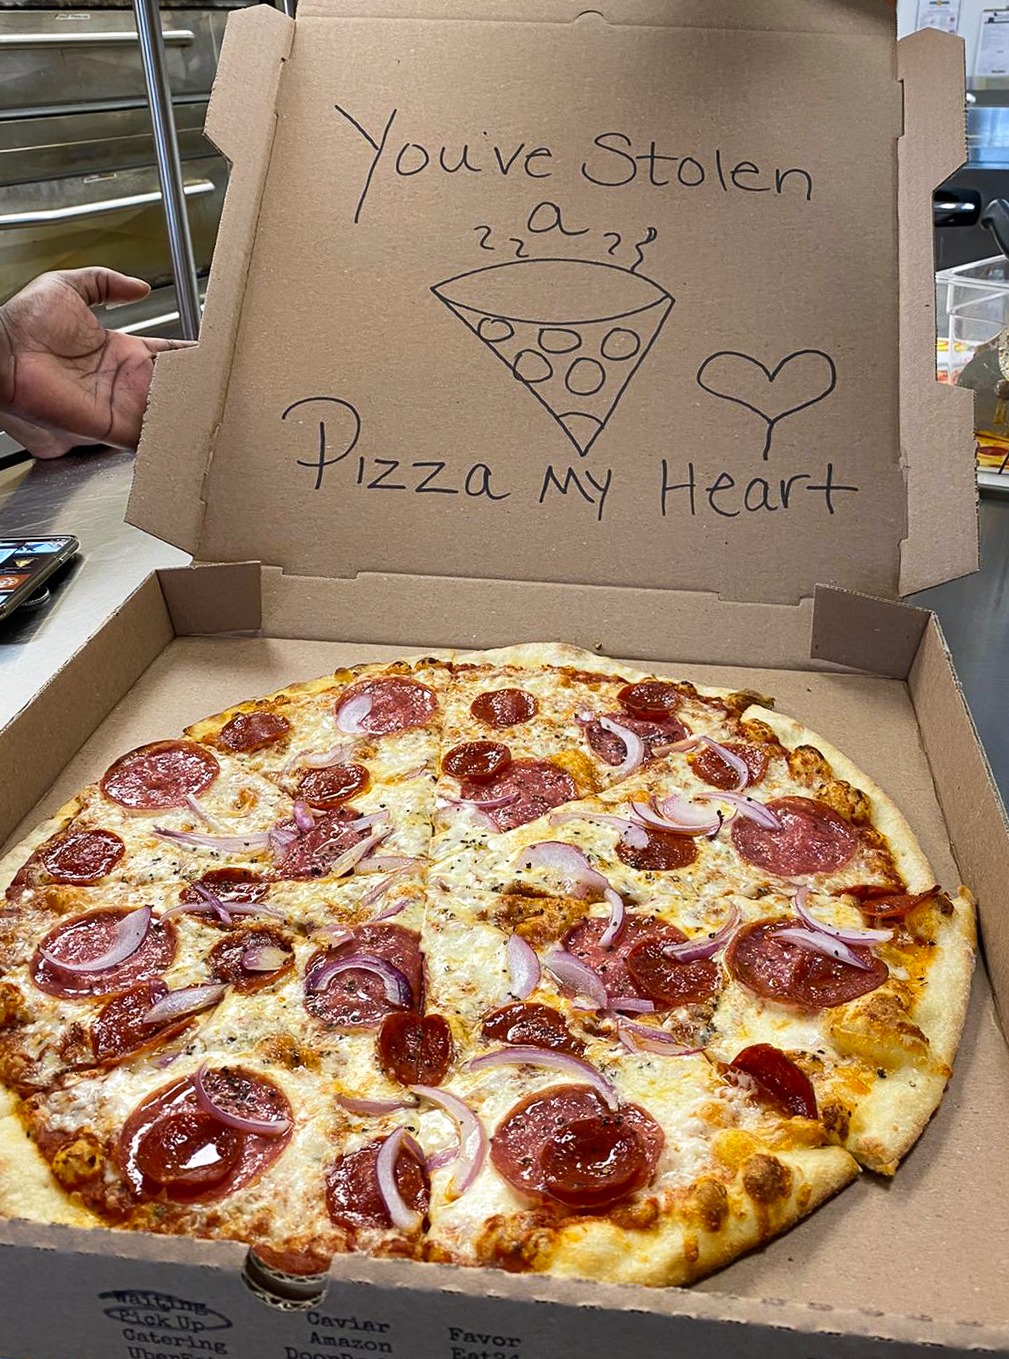 You've Stolen
a
Pizza My Heart
Waiting
Pick Up
Catering
Caviar
Amazon
Favor